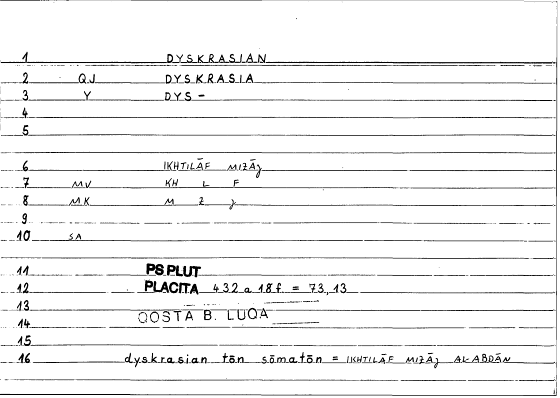 1 DYSKRASIAN
2 QJ DYSKRASIA
3 Y DYS-
4
5
6 IKHTILĀF MIZĀǧ
7 MV KH L F
8 MK M Z ǧ
9
10 SA
11 PS.PLUT
12 PLACITA 432 a 18.f. = 73,13
13
14 QOSTA B. LUQA
15
16 dyskrasian tōn sōmatōn = IKHTILĀF MIZĀǧ AL-ABDĀN